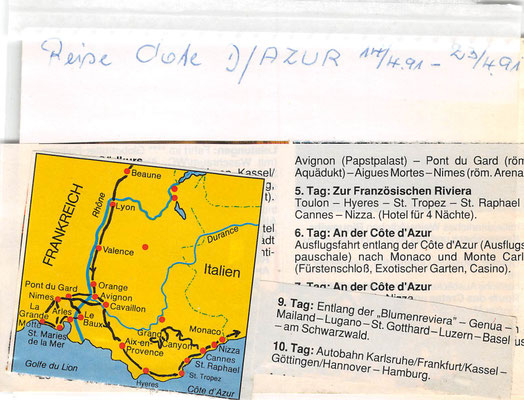 Reise Cote D/AZUR 14/4.91 – 23/4.91
Kassel/
Beaune
Lyon
Rhône
FRANKREICH
Valence
Durance
Italien
Orange
Pont du Gard
Avignon
Nimes
Cavaillon
La Grande Motte
Arles
Le Baux
Grand Canyon
Monaco
St. Maries de la Mer
Aix-en-Provence
Nizza
Cannes
St. Raphael
Golfe du Lion
Hyeres
St. Tropez
Côte d'Azur
Avignon (Papstpalast) – Pont du Gard (röm.
Aquädukt) – Aigues Mortes – Nimes (röm. Arena
5. Tag: Zur Französischen Riviera
Toulon – Hyeres – St. Tropez – St. Raphael
Cannes – Nizza. (Hotel für 4 Nächte).
6. Tag: An der Côte d'Azur
Ausflugsfahrt entlang der Côte d'Azur (Ausflugs
pauschale) nach Monaco und Monte Carl
(Fürstenschloß, Exotischer Garten, Casino).
7. Tag: An der Côte d'Azur
9. Tag: Entlang der „Blumenreviera" – Genua –
Mailand – Lugano – St. Gotthard – Luzern – Basel
– am Schwarzwald.
10. Tag: Autobahn Karlsruhe/Frankfurt/Kassel –
Göttingen/Hannover – Hamburg.